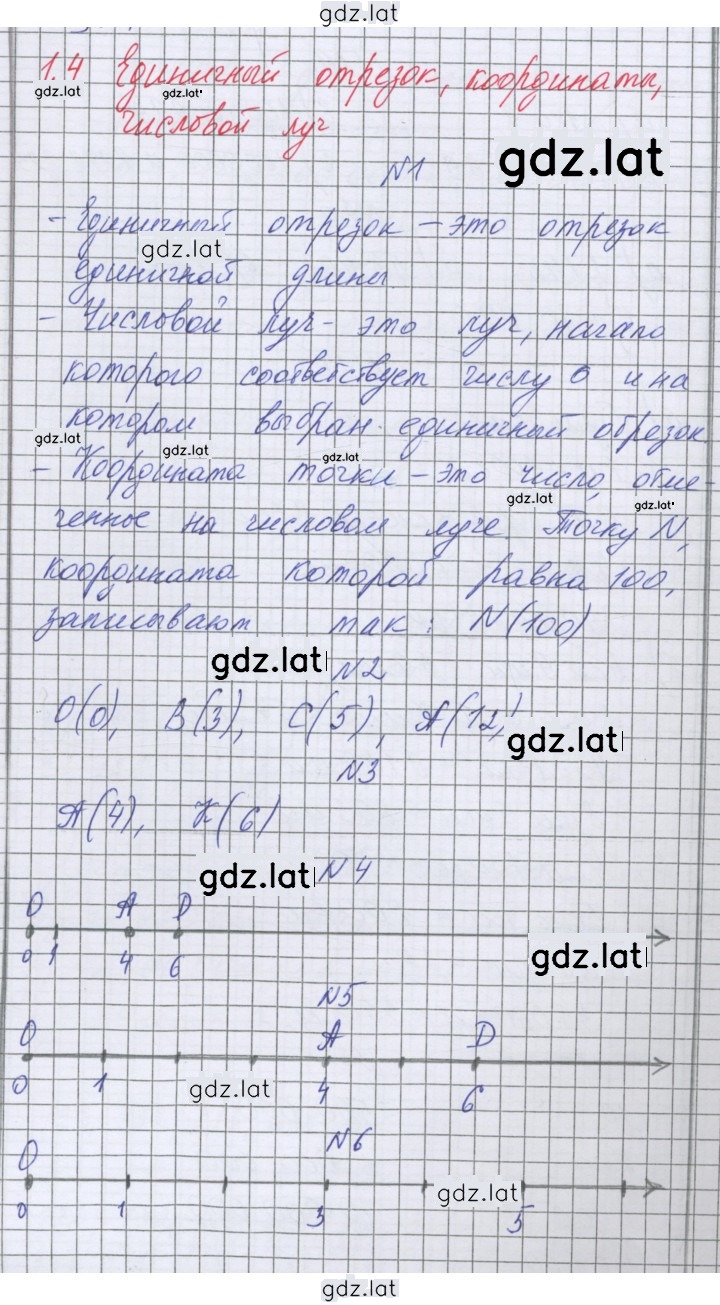 gdz.lat
1.4 Единичный отрезок, координаты,
gdz.lat gdz.lat
числовой луч
gdz.lat
N1
- Единичный отрезок - это отрезок
gdz.lat
единичной длины
- Числовой луч - это луч, начало
которого соответствует числу 0 и на
котором выбран единичный обрезок
gdz.lat gdz.lat gdz.lat
- Координата точки - это число, отме-
gdz.lat gdz.lat
ченное на числовом луче. Точку N,
координата которой равна 100,
записывают так: N(100)
gdz.lat N2
O(0), B(3), C(5), A(12)
gdz.lat
N3
A(4), K(6)
gdz.lat N4
O A D
gdz.lat
0 1 4 6
N5
O A D
0 1 4 6
gdz.lat
N6
O
gdz.lat
0 1 3 5
gdz.lat